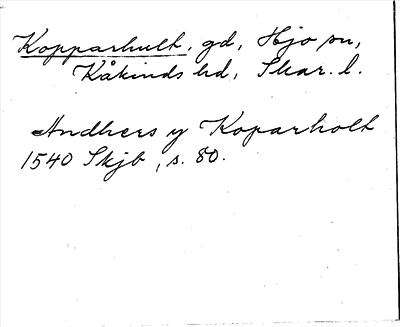 Kopparhult, gd, Hjo sn,
Kåkinds hd, Skar. l.
Andhers y Koparholt
1540 Skjb, s. 80.